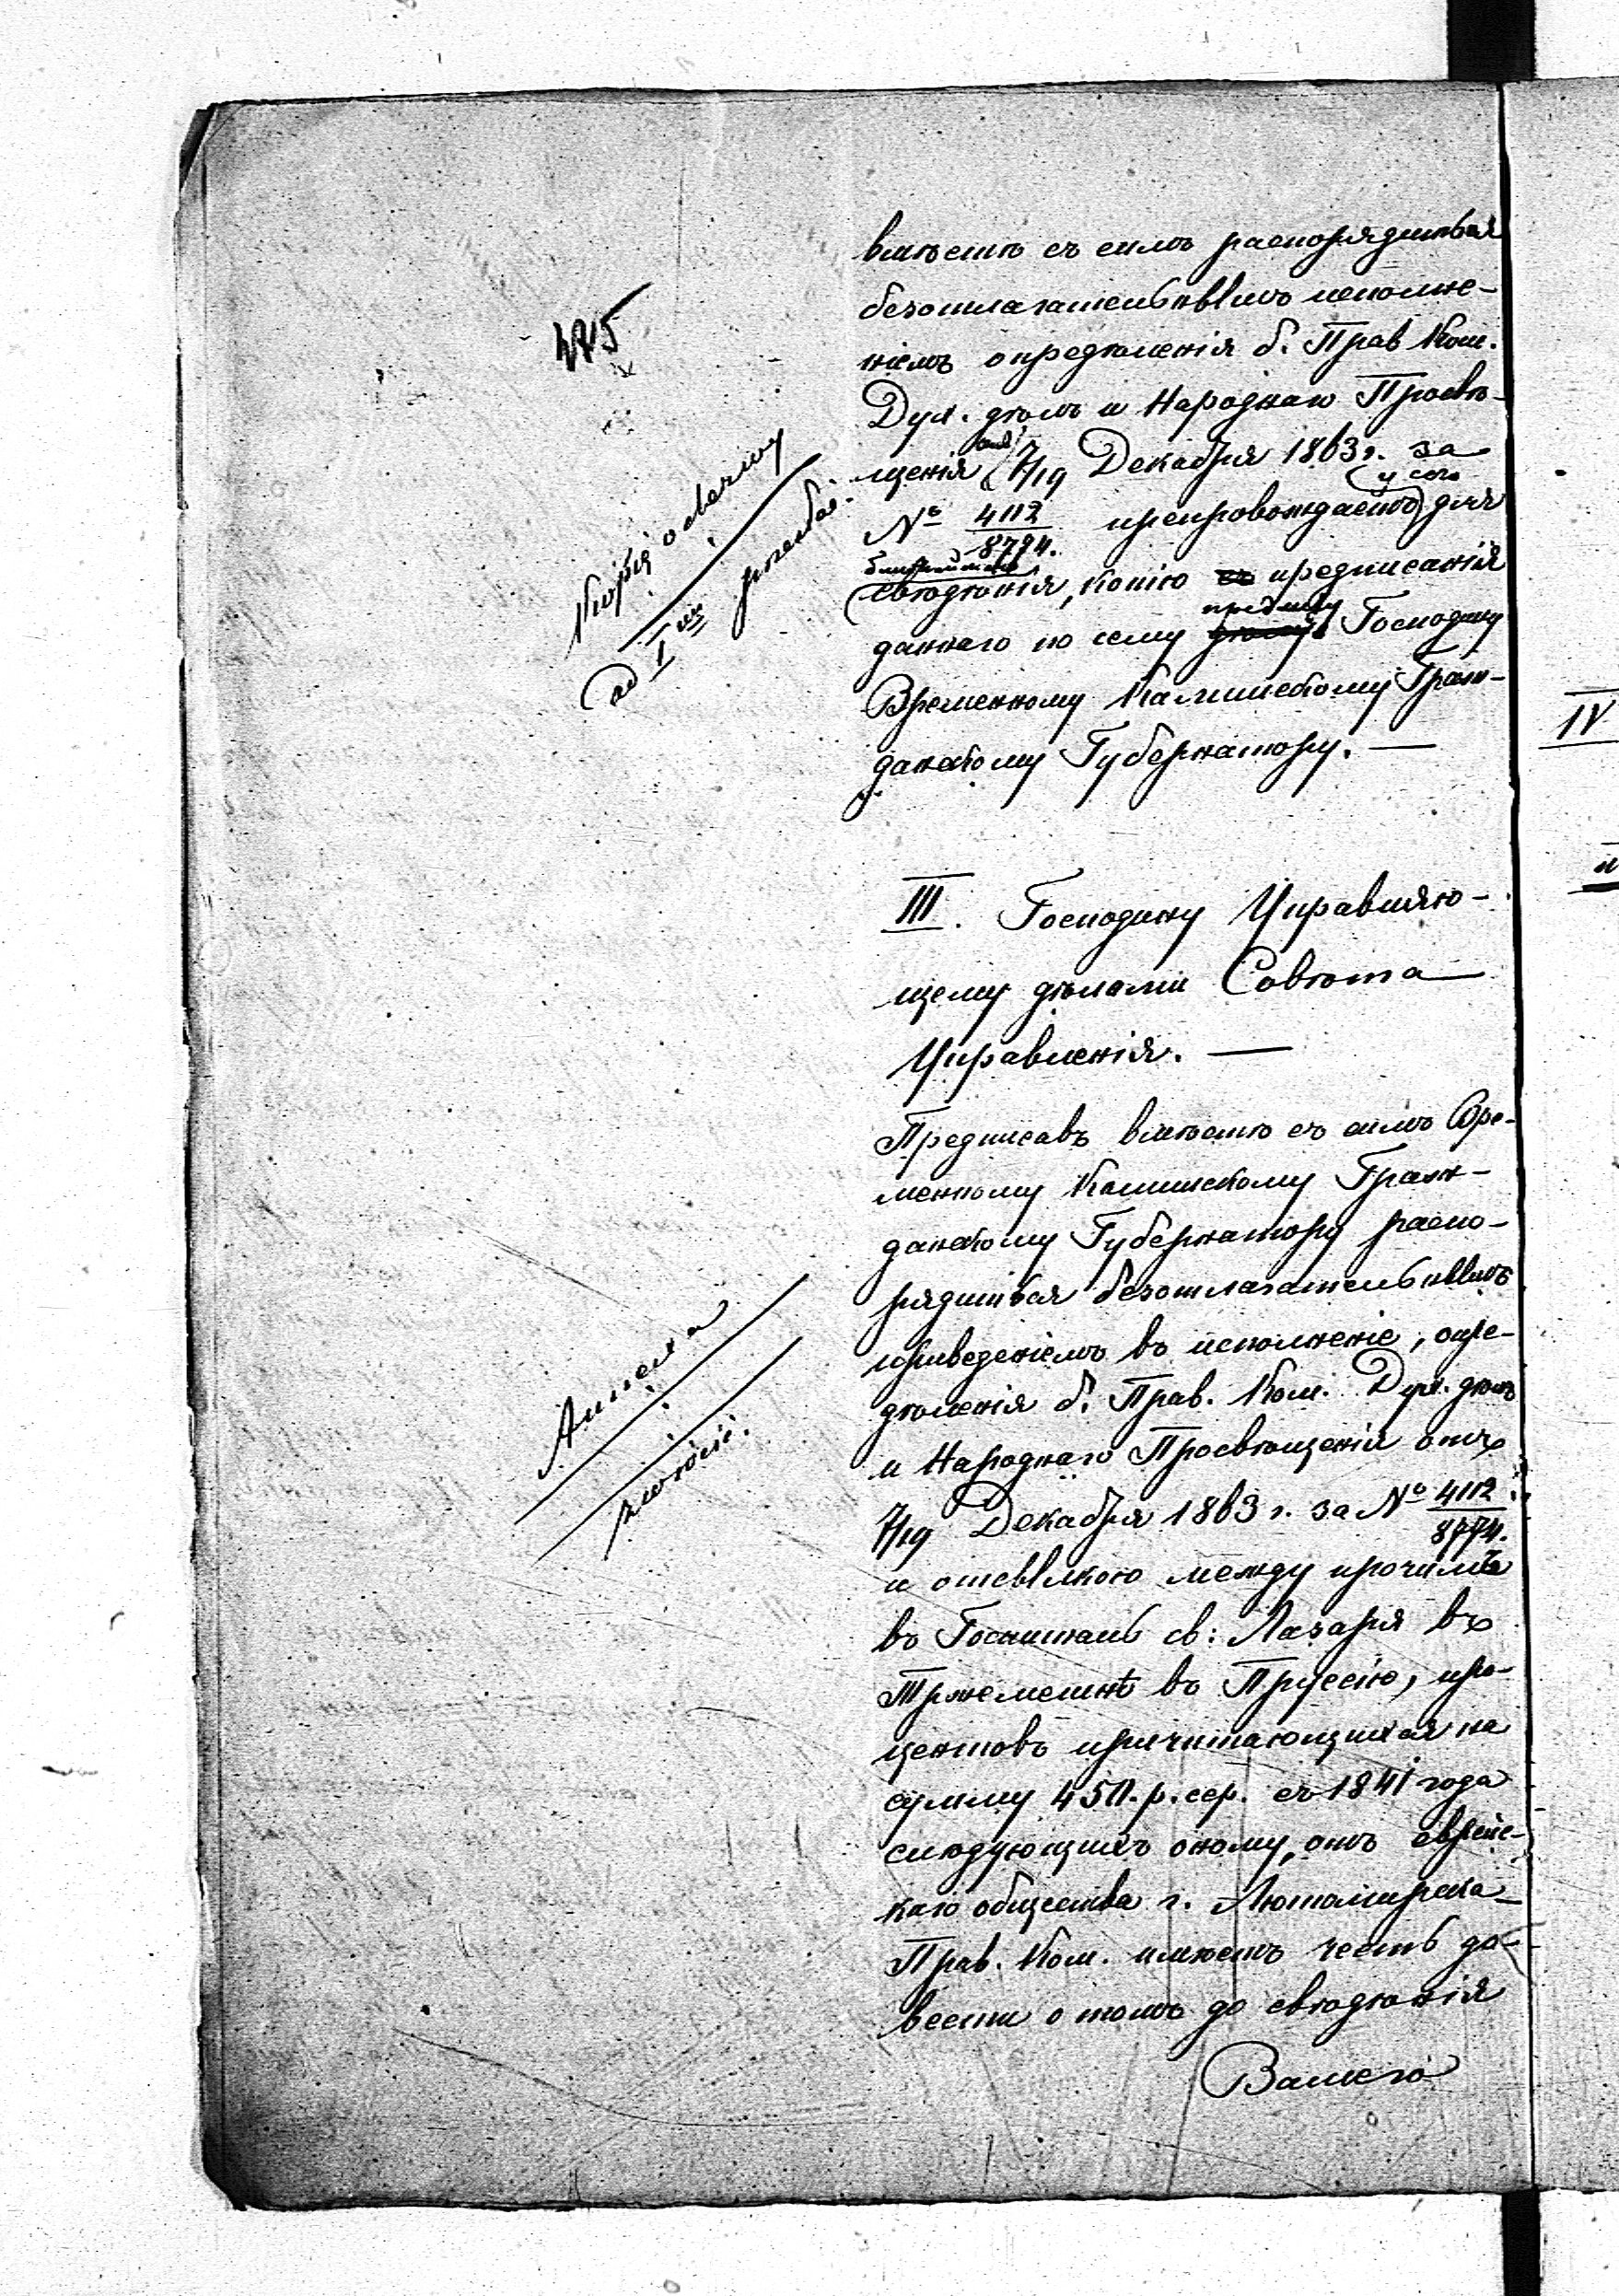 вмѣстѣ съ симъ распорядиться
безотлагательнымъ исполне-
ніемъ опредѣленія б. Прав Ком.
Дух. дѣлъ и Народнаго Просвѣ-
щенія 7/19 Декабря 1863 г. за
№ 4112/8774. препровождаетъ у сего для
ближайшаго
свѣдѣнія, копію съ предписанія
даннаго по сему предмету Господину
Временному Калишскому Граж-
данскому Губернатору. —
III. Господину Управляю-
щему дѣлами Совѣта
Управленія. —
Предписавъ вмѣстѣ съ симъ Вре-
менному Калишскому Граж-
данскому Губернатору распо-
рядиться безотлагательнымъ
приведеніемъ въ исполненіе, опре-
дѣленія б. Прав. Ком. Дух. дѣлъ
и Народнаго Просвѣщенія отъ
7/19 Декабря 1863 г. за № 4112/8774.
и отсылкою между прочимъ
въ Госпиталь св: Лазаря въ
Тржемешнѣ въ Пруссію, про-
центовъ причитающихся на
сумму 450. р. сер. съ 1841 года
слѣдующихъ оному, отъ еврейс-
каго общества г. Лютомирска
Прав. Ком. имѣетъ честь до-
вести о томъ до свѣдѣнія
Вашего
ad I
IV